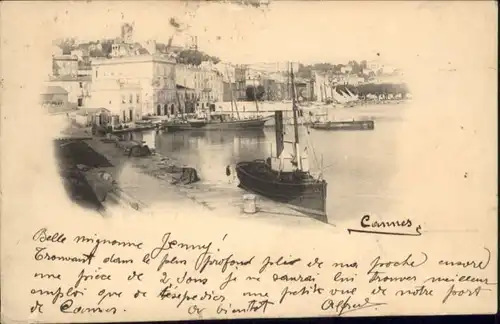 Cannes
Belle mignonne Jenny!
Trouvant dans le plus profond plis de ma poche encore
une pièce de 2 sous je ne saurai lui trouver meilleur
emploi que de t'éxpedier une petite vue de notre port
de Cannes. De bientôt Alfred